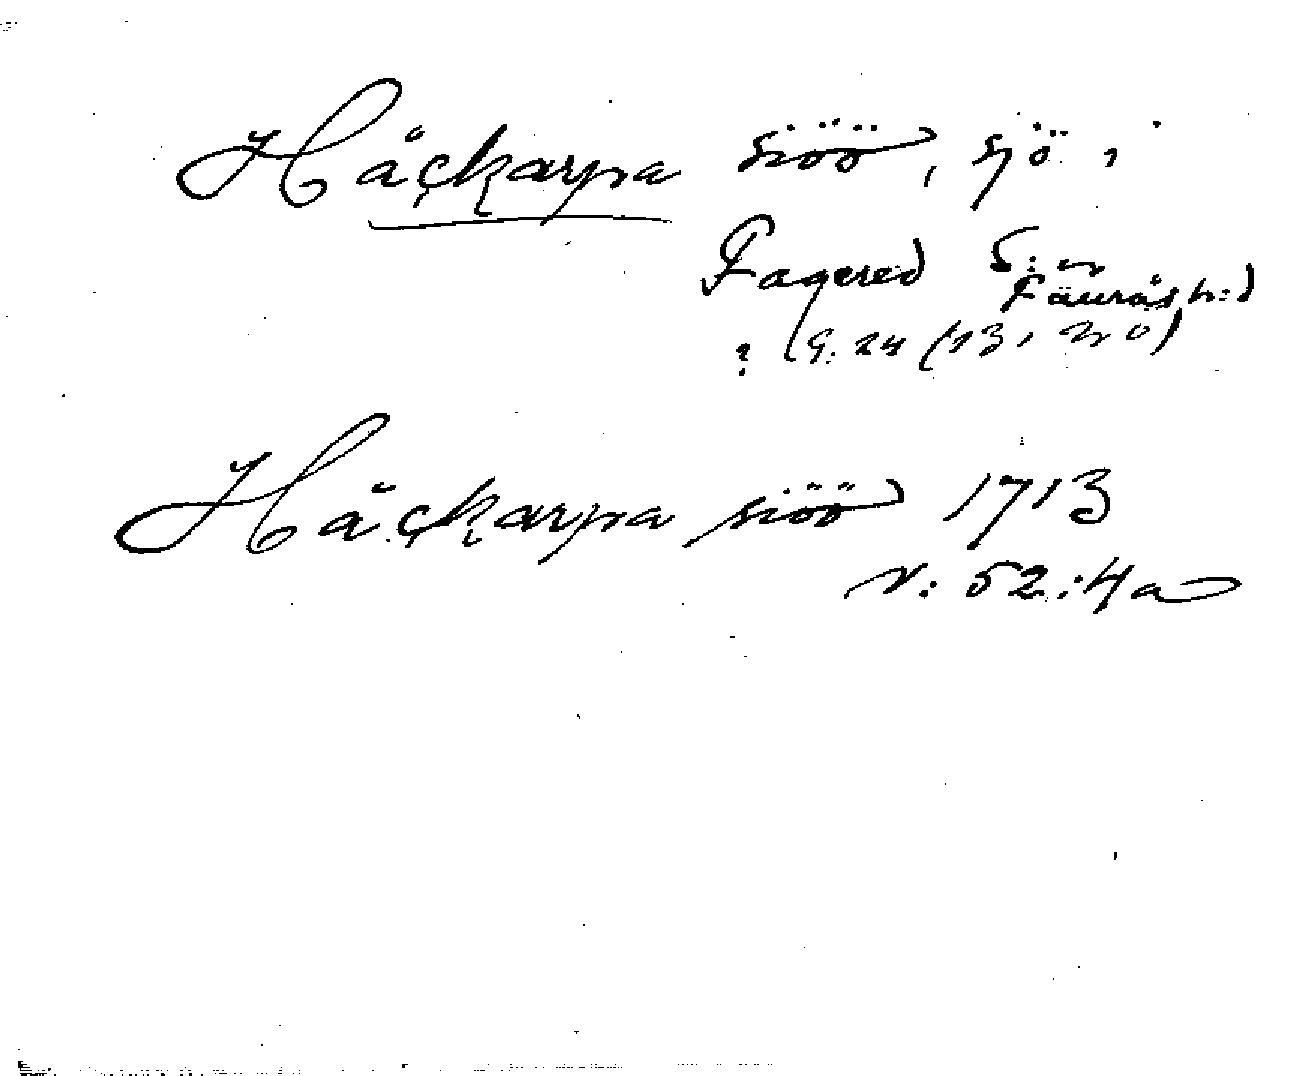 Håckarpa siöö, sjö i
Fagered S:n
Fauråsh:d
? G. 24 (13, 20)
Håckarpa siöö 1713
N: 52:4a